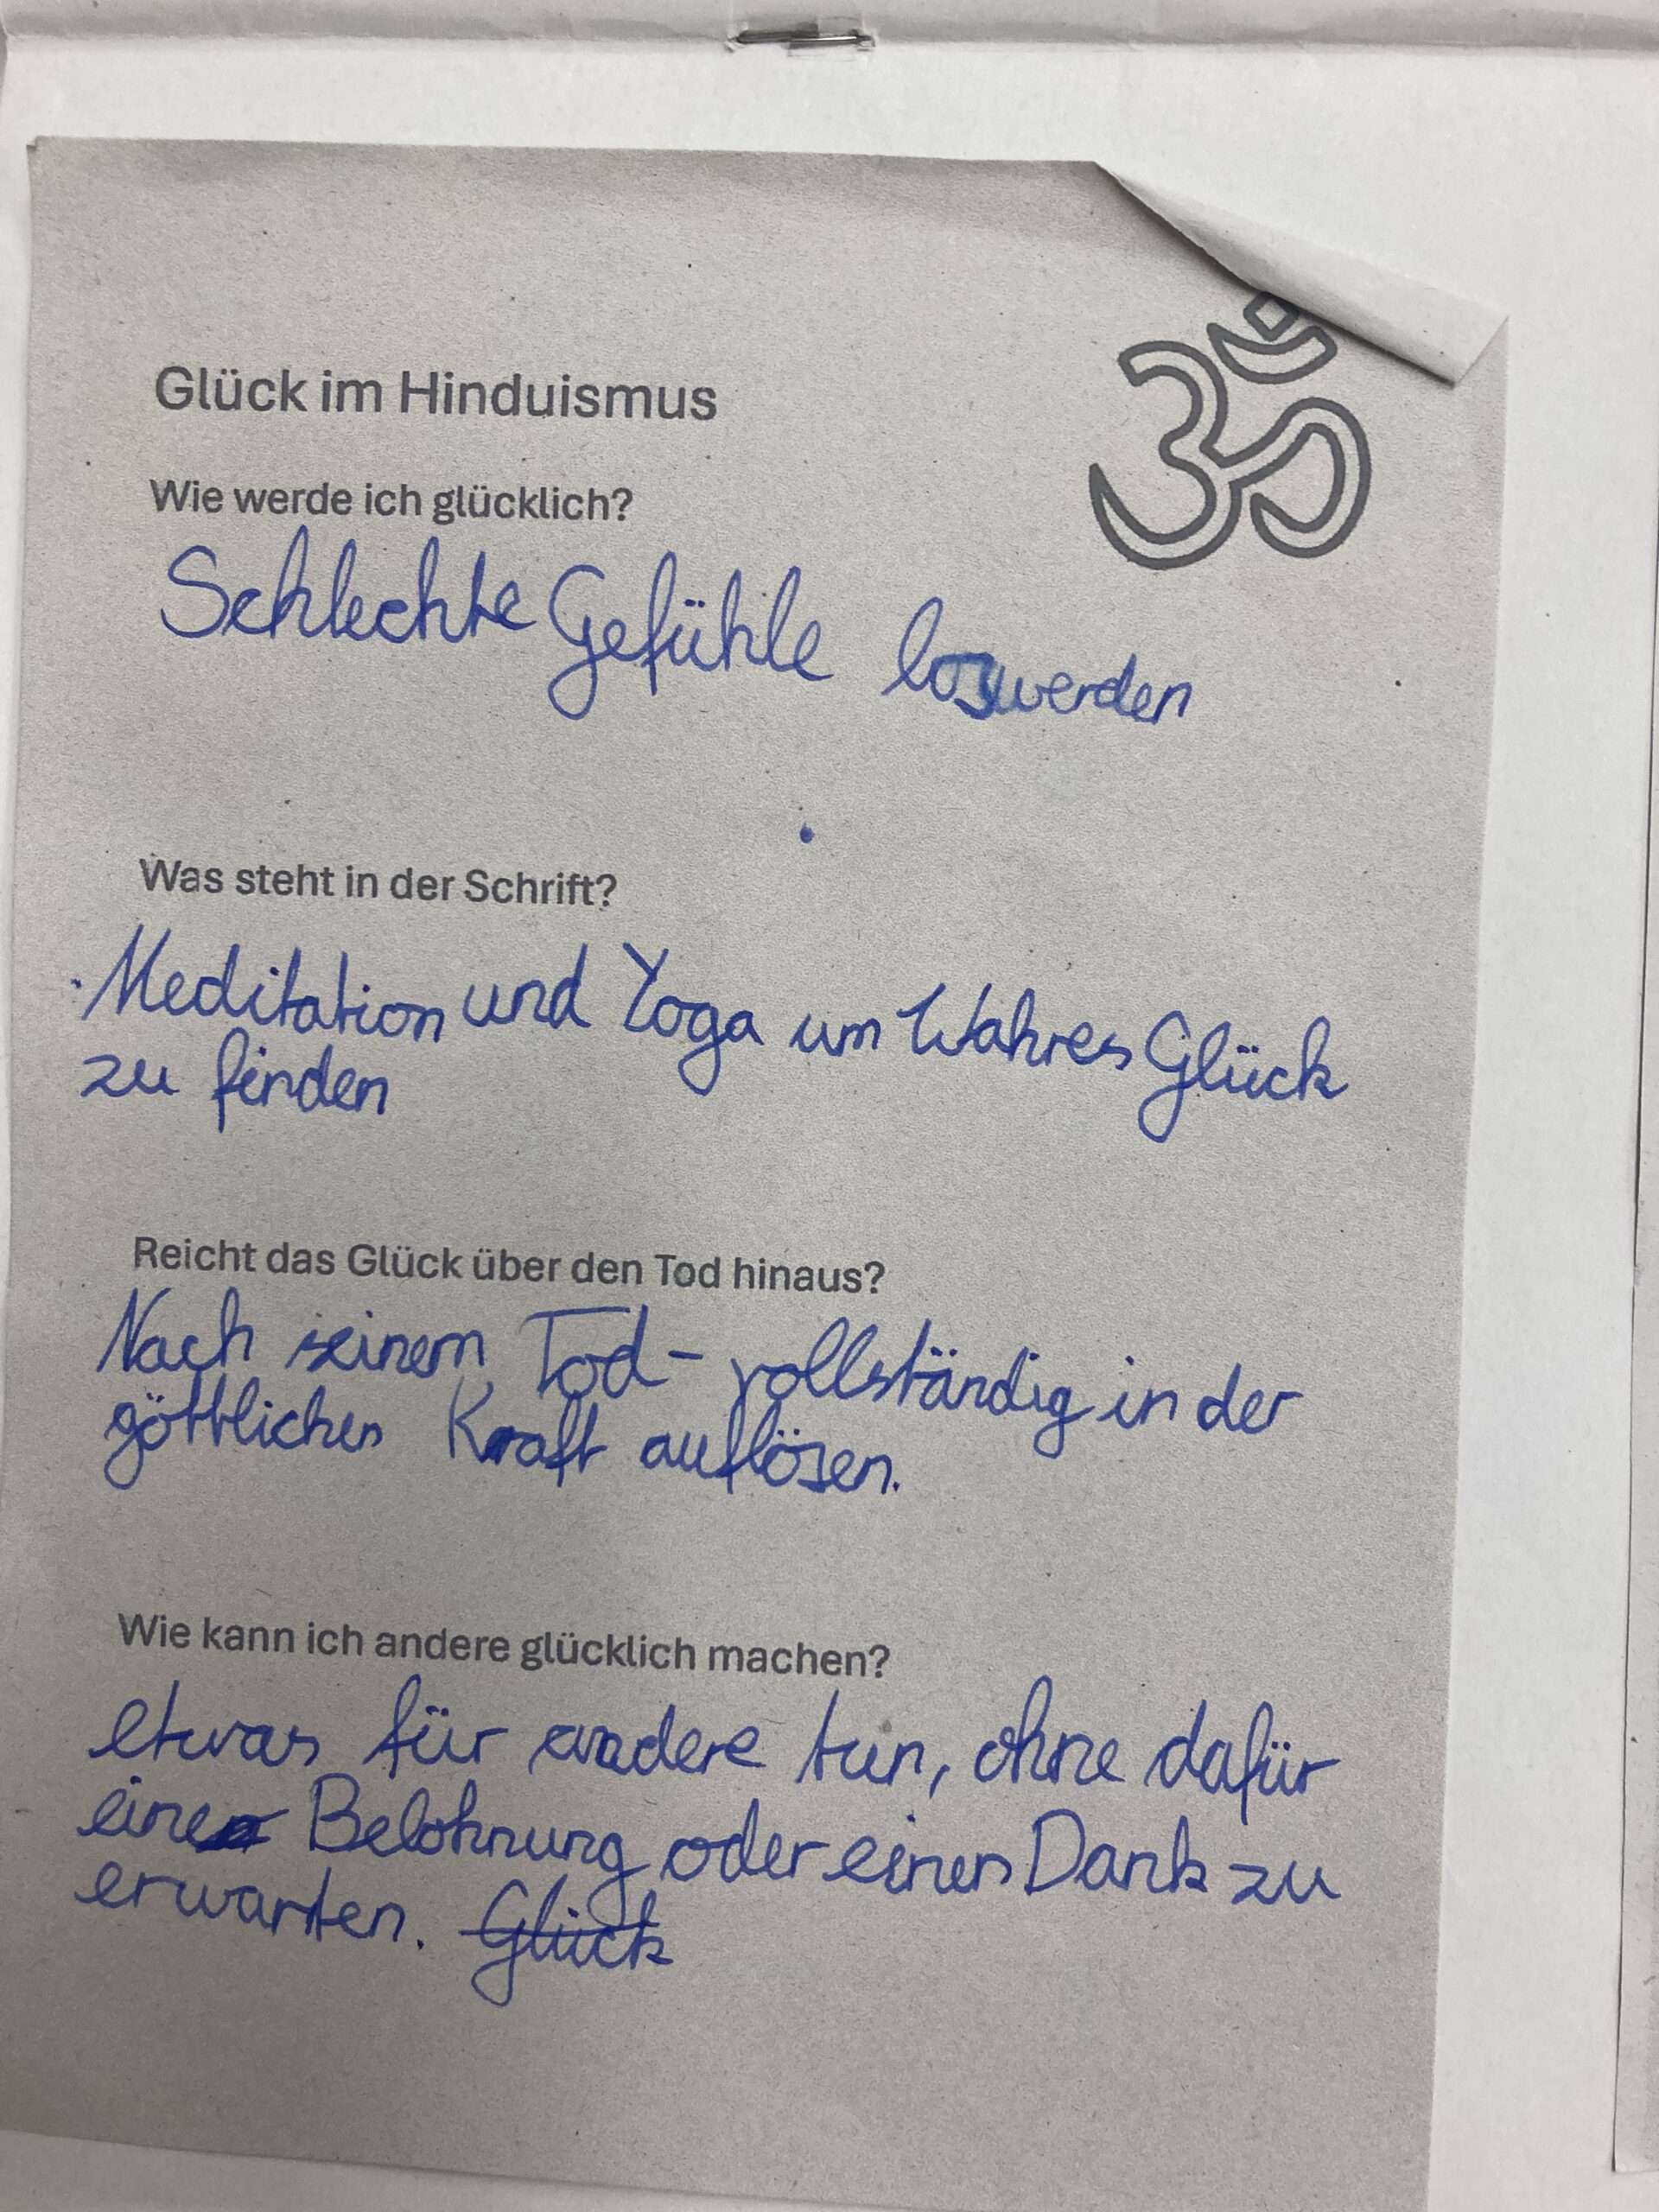 Glück im Hinduismus
ॐ
Wie werde ich glücklich?
Schlechte Gefühle loswerden
Was steht in der Schrift?
Meditation und Yoga um Wahres Glück
zu finden
Reicht das Glück über den Tod hinaus?
Nach seinem Tod- vollständig in der
göttlichen Kraft auflösen.
Wie kann ich andere glücklich machen?
etwas für andere tun, ohne dafür
eine Belohnung oder einen Dank zu
erwarten. Glück